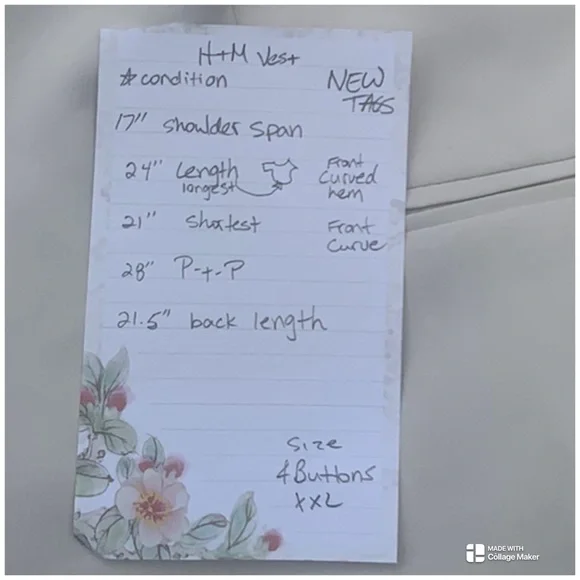 H+M Vest
☆condition NEW
TAGS
17" Shoulder Span
24" Length Front
longest Curved
hem
21" Shortest Front
Curve
28" P-t-P
21.5" back length
Size
4 Buttons
XXL
MADE WITH
Collage Maker